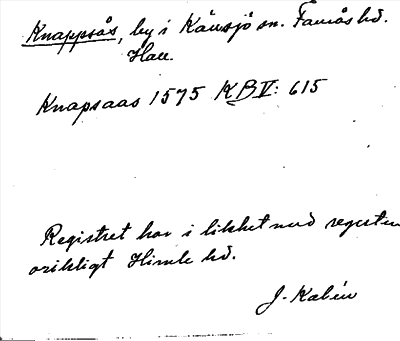 Knappsås, by i Källsjö sn. Faurås hd.
Hall.
Knapsaas 1575 KB V: 615
Registret har i likhet med regesten
oriktigt Himle hd.
J. Kalén